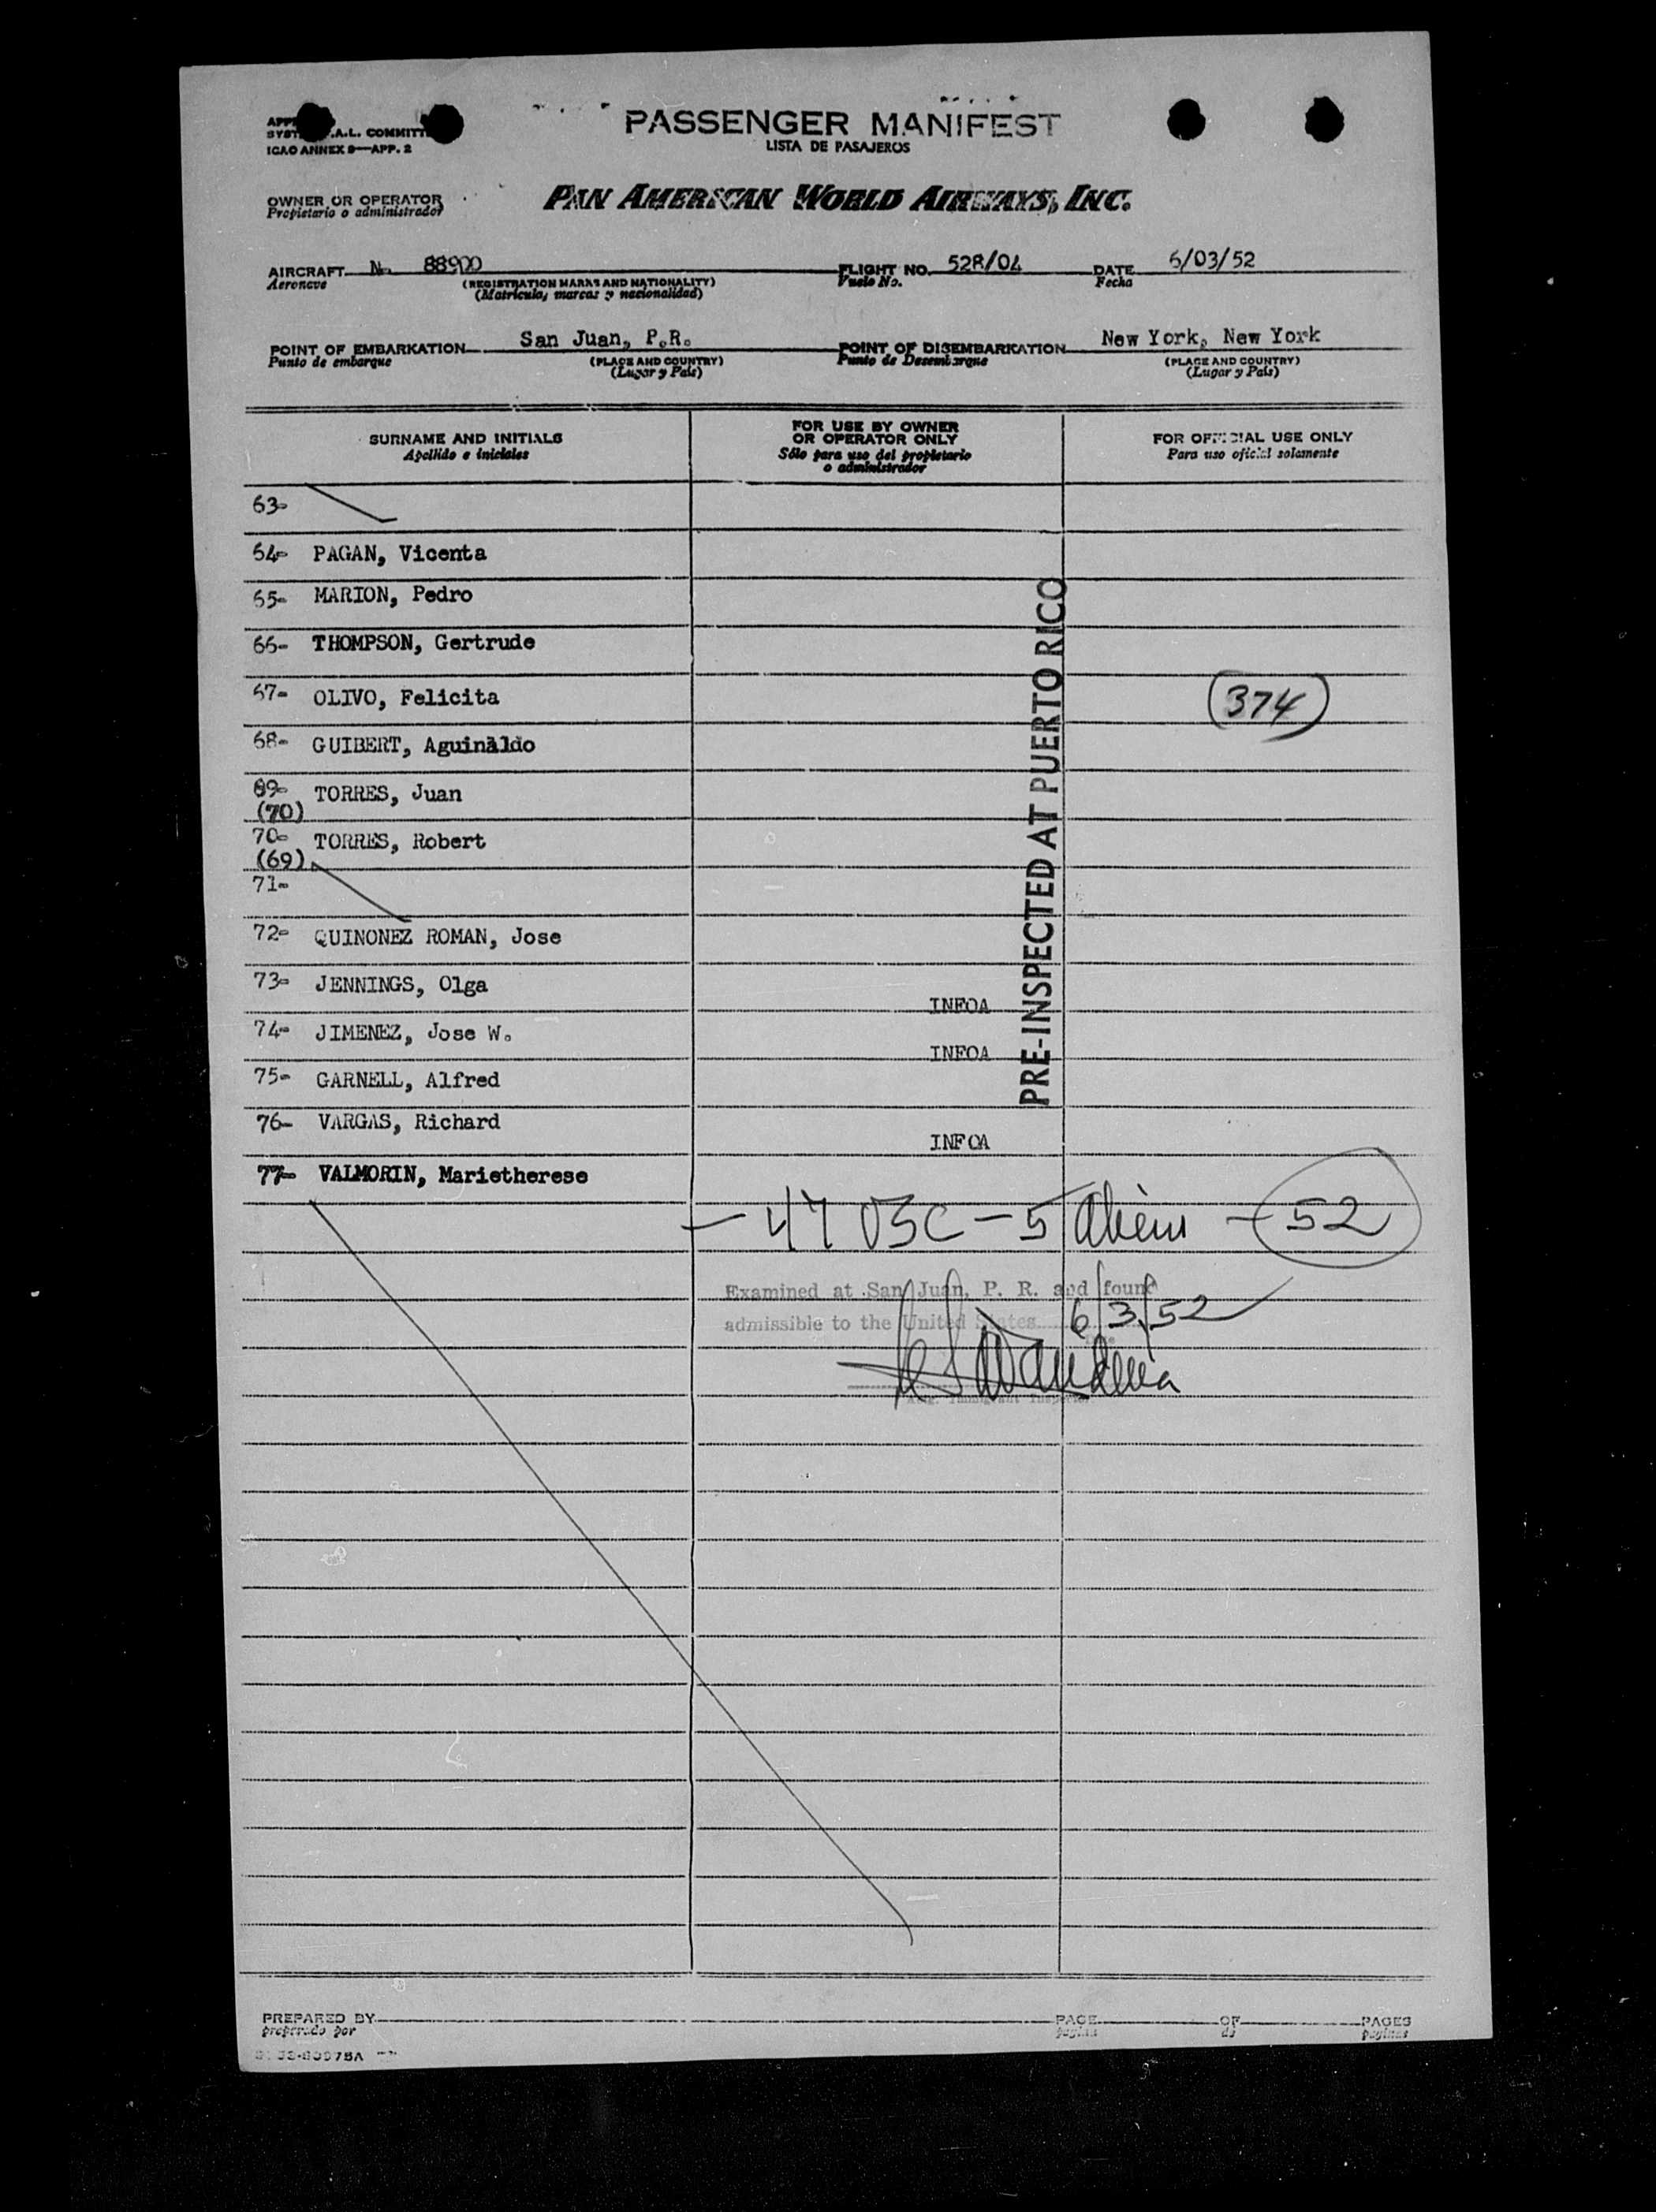 PASSENGER MANIFEST
LISTA DE PASAJEROS
.A.L. COMMITT
ICAO ANNEX 9—APP. 2
OWNER OR OPERATOR
Propietario o administrador
PAN AMERICAN WORLD AIRWAYS, INC.
AIRCRAFT N- 88900 FLIGHT NO. 528/04 DATE 6/03/52
Aeronave (REGISTRATION MARKS AND NATIONALITY) Vuelo No. Fecha
(Matricula, marcas y nacionalidad)
POINT OF EMBARKATION San Juan, P.R. POINT OF DISEMBARKATION New York, New York
Punto de embarque (PLACE AND COUNTRY) Punto de Desembarque (PLACE AND COUNTRY)
(Lugar y País) (Lugar y País)
SURNAME AND INITIALS
Apellido e iniciales
FOR USE BY OWNER
OR OPERATOR ONLY
Sólo para uso del propietario
o administrador
FOR OFFICIAL USE ONLY
Para uso oficial solamente
63-
64- PAGAN, Vicenta
65- MARION, Pedro
66- THOMPSON, Gertrude
67- OLIVO, Felicita
374
68- GUIBERT, Aguinaldo
69- TORRES, Juan
(70)
70- TORRES, Robert
(69)
71-
72- QUINONEZ ROMAN, Jose
73- JENNINGS, Olga
INFOA
74- JIMENEZ, Jose W.
INFOA
75- GARNELL, Alfred
76- VARGAS, Richard
INFOA
77- VALMORIN, Marietherese
PRE-INSPECTED AT PUERTO RICO
- 47 USC - 5 Aliens - 52
Examined at San Juan, P. R. and found
admissible to the United States 6/3/52
Date
Immigrant Inspector
PREPARED BY PAGE OF PAGES
preparado por página de páginas